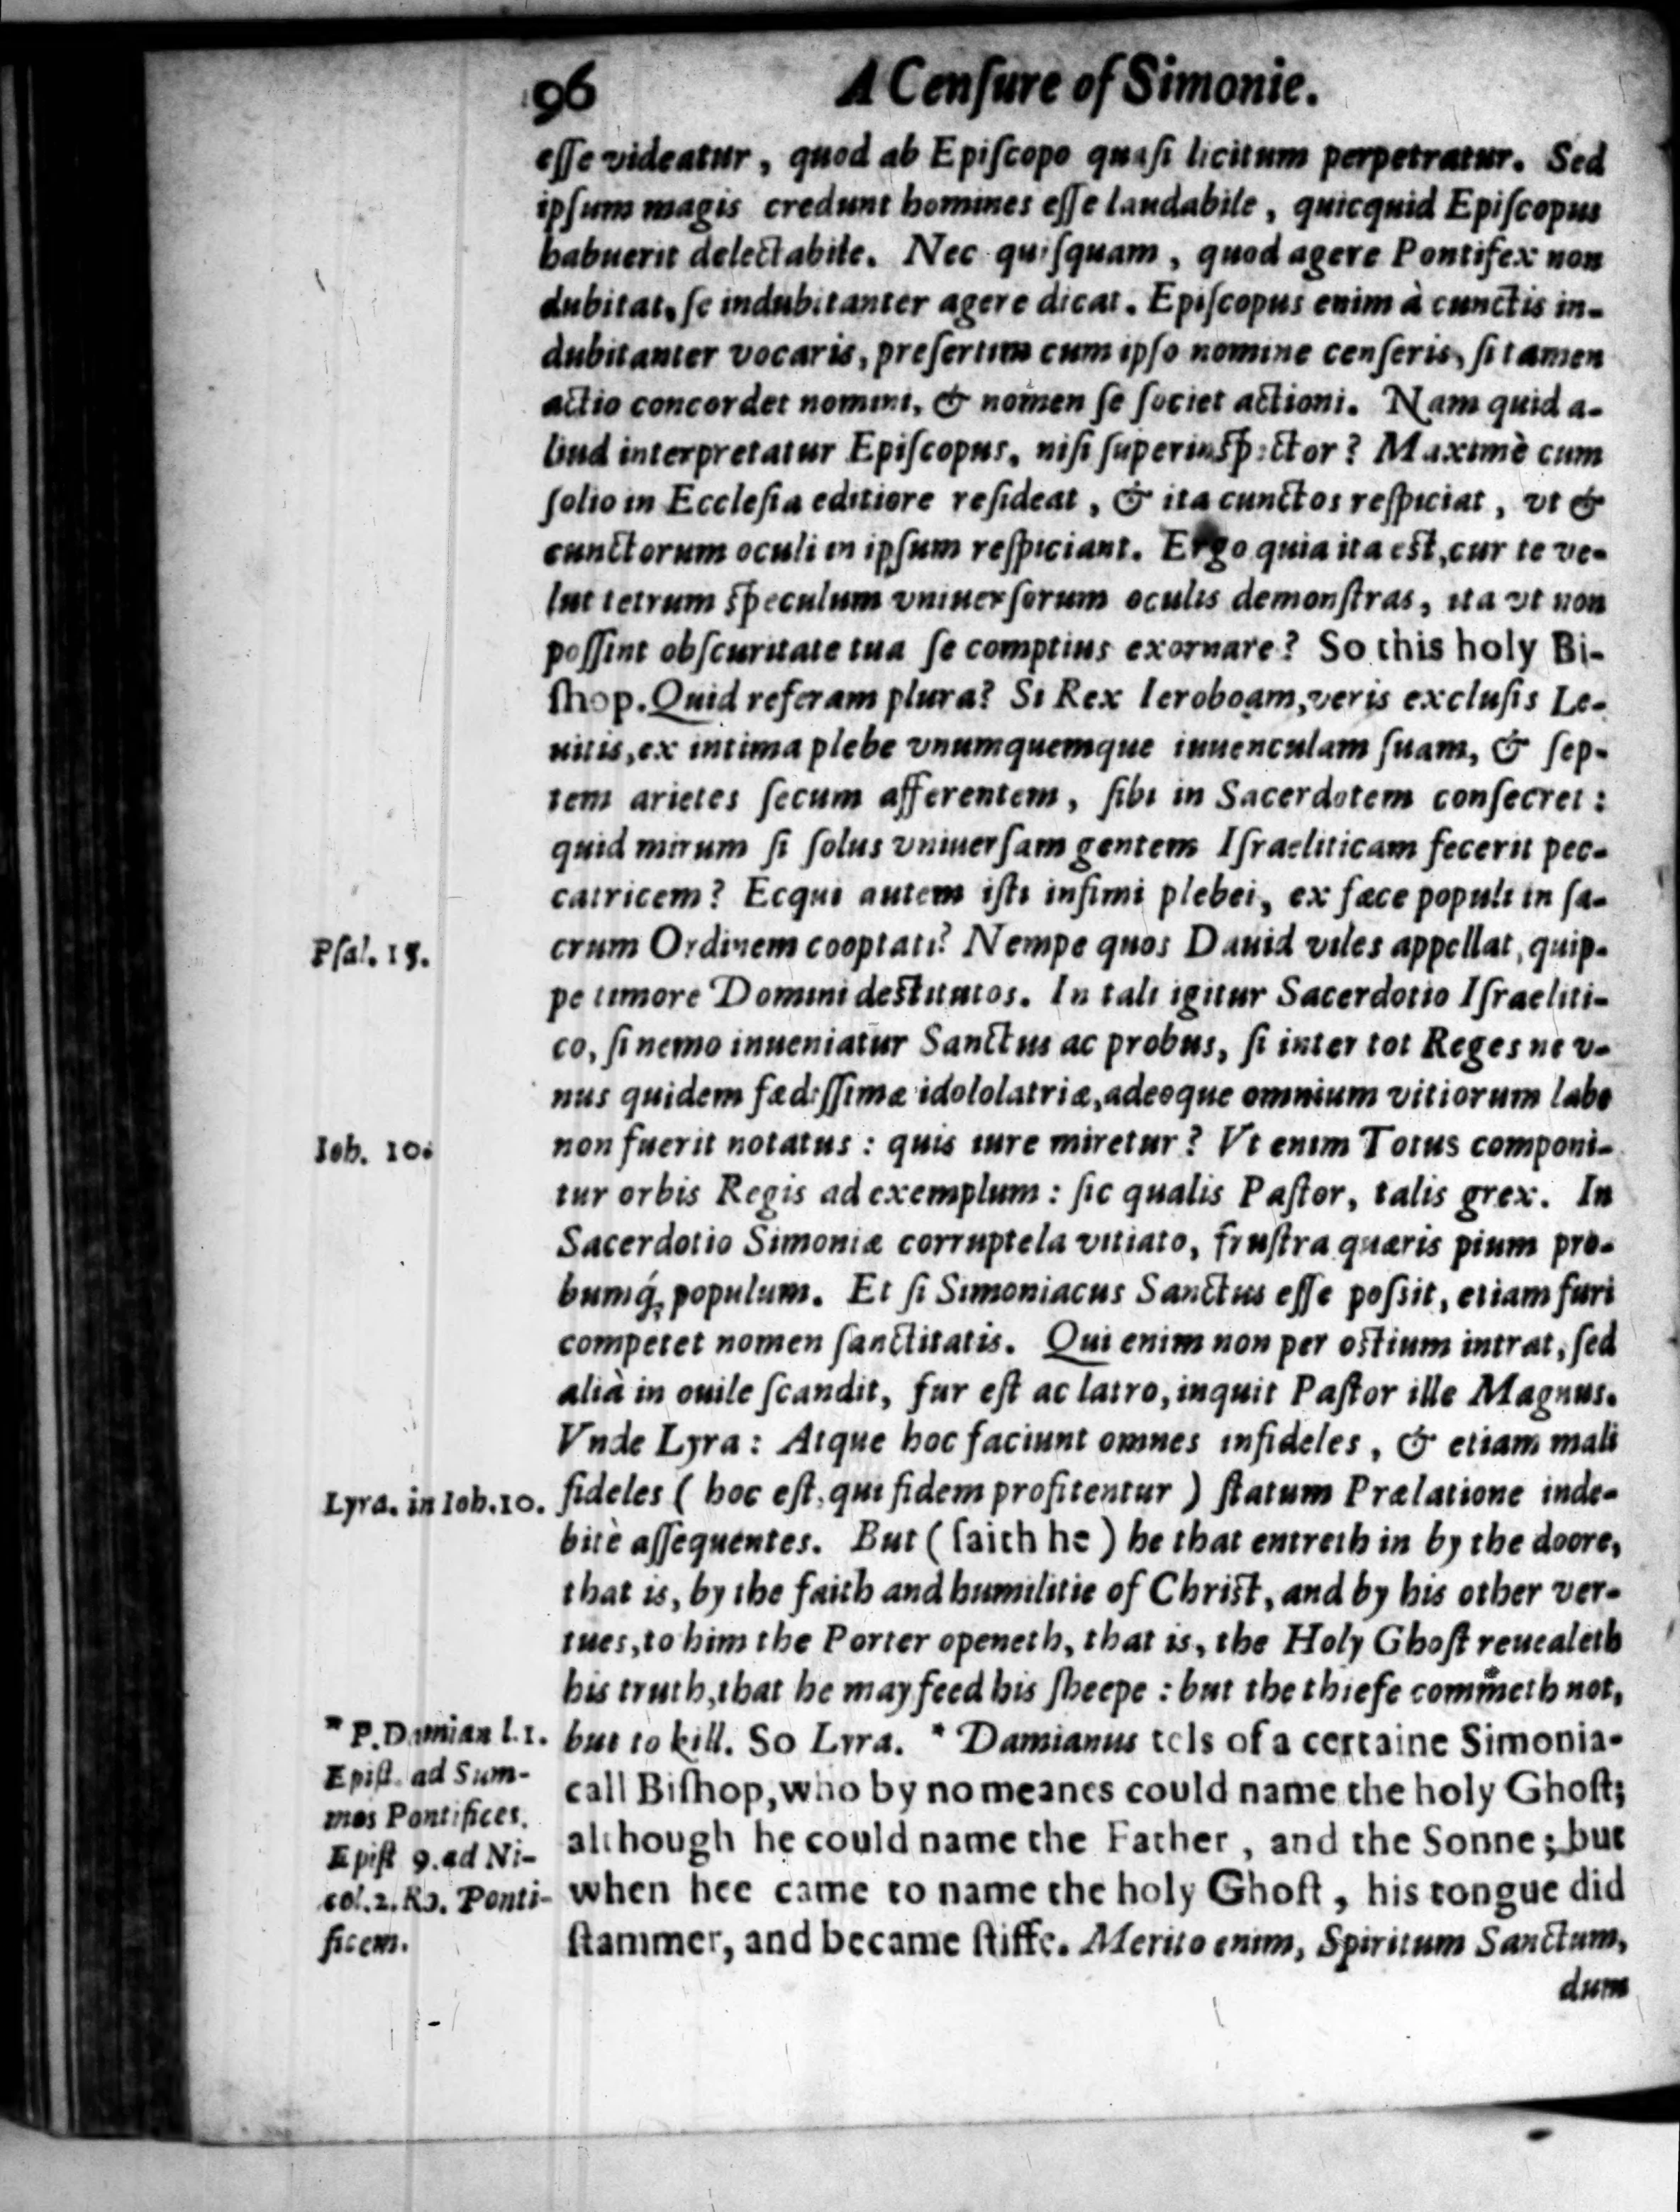 96 A Cenſure of Simonie.
eſſe videatur, quod ab Epiſcopo quaſi licitum perpetratur. Sed
ipſum magis credunt homines eſſe laudabile, quicquid Epiſcopus
habuerit delectabile. Nec quiſquam, quod agere Pontifex non
dubitat, ſe indubitanter agere dicat. Epiſcopus enim à cunctis in-
dubitanter vocaris, preſertim cum ipſo nomine cenſeris, ſi tamen
actio concordet nomini, & nomen ſe ſociet actioni. Nam quid a-
liud interpretatur Epiſcopus, niſi ſuperinſpector? Maximè cum
ſolio in Eccleſia editiore reſideat, & ita cunctos reſpiciat, vt &
cunctorum oculi in ipſum reſpiciant. Ergo quia ita eſt, cur te ve-
lut tetrum ſpeculum vniuerſorum oculis demonſtras, ita vt non
poſſint obſcuritate tua ſe comptius exornare? So this holy Bi-
ſhop. Quid referam plura? Si Rex Ieroboam, veris excluſis Le-
uitis, ex intima plebe vnumquemque iuuenculam ſuam, & ſep-
tem arietes ſecum afferentem, ſibi in Sacerdotem conſecret:
quid mirum ſi ſolus vniuerſam gentem Iſraeliticam fecerit pec-
catricem? Ecqui autem iſti infimi plebei, ex fæce populi in ſa-
Pſal. 15.
crum Ordinem cooptati? Nempe quos Dauid viles appellat, quip-
pe timore Domini deſtitutos. In tali igitur Sacerdotio Iſraeliti-
co, ſi nemo inueniatur Sanctus ac probus, ſi inter tot Reges ne v-
nus quidem fædiſſimæ idololatriæ, adeoque omnium vitiorum labe
Ioh. 10.
non fuerit notatus: quis iure miretur? Vt enim Totus componi-
tur orbis Regis ad exemplum: ſic qualis Paſtor, talis grex. In
Sacerdotio Simoniæ corruptela vitiato, fruſtra quæris pium pro-
bumq́; populum. Et ſi Simoniacus Sanctus eſſe poſsit, etiam furi
competet nomen ſanctitatis. Qui enim non per oſtium intrat, ſed
alià in ouile ſcandit, fur eſt ac latro, inquit Paſtor ille Magnus.
Vnde Lyra: Atque hoc faciunt omnes infideles, & etiam mali
Lyra. in Ioh. 10.
fideles (hoc eſt, qui fidem profitentur) ſtatum Prælatione inde-
bitè aſſequentes. But (ſaith he) he that entreth in by the doore,
that is, by the faith and humilitie of Chriſt, and by his other ver-
tues, to him the Porter openeth, that is, the Holy Ghoſt reuealeth
his truth, that he may feed his ſheepe: but the thiefe commeth not,
* P. Damian l. 1.
Epiſt. ad Sum-
mos Pontifices.
Epiſt 9. ad Ni-
col. 2. Ro. Ponti-
ficem.
but to kill. So Lyra. * Damianus tels of a certaine Simonia-
call Biſhop, who by no meanes could name the holy Ghoſt;
although he could name the Father, and the Sonne; but
when hee came to name the holy Ghoſt, his tongue did
ſtammer, and became ſtiffe. Merito enim, Spiritum Sanctum,
dum